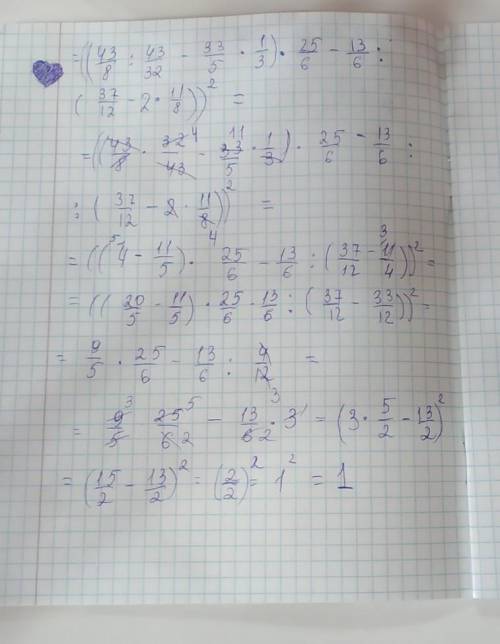 = ((43/8 : 43/32 - 33/5 · 1/3) · 25/6 - 13/6 :
(37/12 - 2 · 11/8))² =
= ((43/8 · 32/43 4 - 11 33/5 · 1/3) · 25/6 - 13/6 :
: (37/12 - 2 · 11/8 4))² =
= ((5 4 - 11/5) · 25/6 - 13/6 : (37/12 - 3 11/4))² =
= ((20/5 - 11/5) · 25/6 - 13/6 : (37/12 - 33/12))² =
= 9/5 · 25/6 - 13/6 : 4/12 =
= 9 3/5 25 5/6 2 - 13/6 2 · 3 3 1 = (3 · 5/2 - 13/2)²
= (15/2 - 13/2)² = (2/2)² = 1² = 1